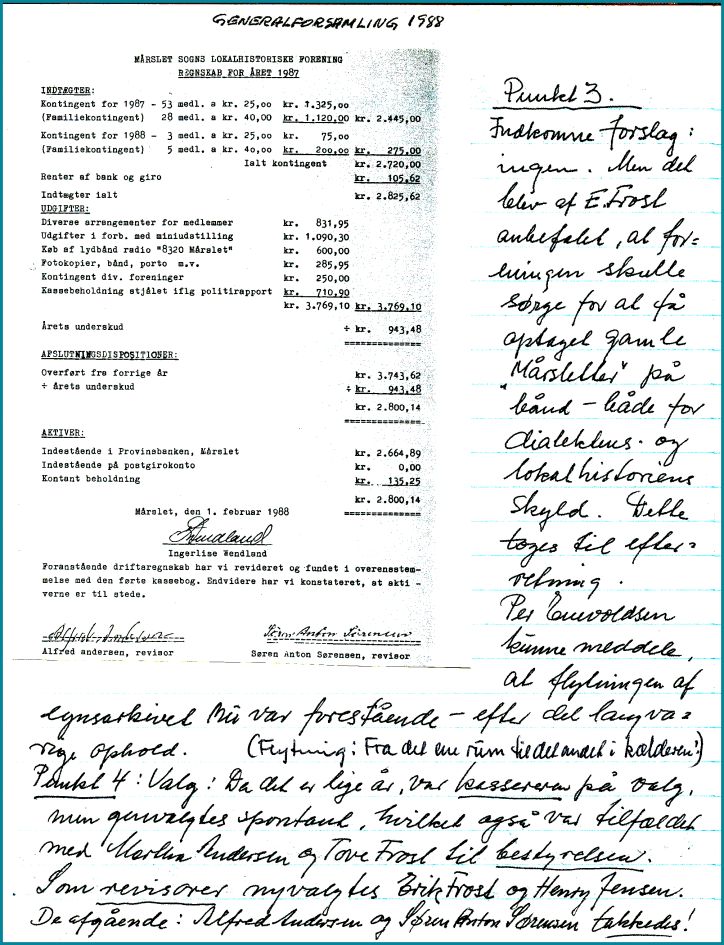 GENERALFORSAMLING 1988
MÅRSLET SOGNS LOKALHISTORISKE FORENING
REGNSKAB FOR ÅRET 1987
INDTÆGTER:
Kontingent for 1987 - 53 medl. a kr. 25,00 kr. 1.325,00
(Familiekontingent) 28 medl. a kr. 40,00 kr. 1.120,00 kr. 2.445,00
Kontingent for 1988 - 3 medl. a kr. 25,00 kr. 75,00
(Familiekontingent) 5 medl. a kr. 40,00 kr. 200,00 kr. 275,00
Ialt kontingent kr. 2.720,00
Renter af bank og giro kr. 105,62
Indtægter ialt kr. 2.825,62
UDGIFTER:
Diverse arrangementer for medlemmer kr. 831,95
Udgifter i forb. med miniudstilling kr. 1.090,30
Køb af lydbånd radio "8320 Mårslet" kr. 600,00
Fotokopier, bånd, porto m.v. kr. 285,95
Kontingent div. foreninger kr. 250,00
Kassebeholdning stjålet iflg politirapport kr. 710,90
kr. 3.769,10 kr. 3.769,10
Årets underskud ÷ kr. 943,48
=============
APSLUTNINGSDISPOSITIONER:
Overført fra forrige år kr. 3.743,62
÷ Årets underskud ÷ kr. 943,48
kr. 2.800,14
=============
AKTIVER:
Indestående i Provinsbanken, Mårslet kr. 2.664,89
Indestående på postgirokonto kr. 0,00
Kontant beholdning kr. 135,25
kr. 2.800,14
=============
Mårslet, den 1. februar 1988
Ingerlise Wendland
Foranstående driftsregnskab har vi revideret og fundet i overensstem-
melse med den førte kassebog. Endvidere har vi konstateret, at akti-
verne er til stede.
Søren Anton Sørensen
Alfred andersen, revisor Søren Anton Sørensen, revisor
Punkt 3.
Indkomne forslag:
ingen. Men det
blev af E. Frost
anbefalet, at for=
eningen skulle
sørge for at få
optaget gamle
"Mårsletter" på
bånd - både for
dialektens- og
lokalhistoriens
skyld. Dette
toges til efter=
retning.
Per Enevoldsen
kunne meddele,
at flytningen af
egnsarkivet nu var forestående - efter det langva=
rige ophold. (Flytning: Fra det ene rum til det andet i kælderen!)
Punkt 4: Valg: Da det er lige år, var kassereren på valg,
men genvalgtes spontant, hvilket også var tilfældet
med Martha Andersen og Tove Frost til bestyrelsen.
Som revisorer nyvalgtes Erik Frost og Henry Jensen.
De afgående: Alfred Andersen og Søren Anton Sørensen takkedes!